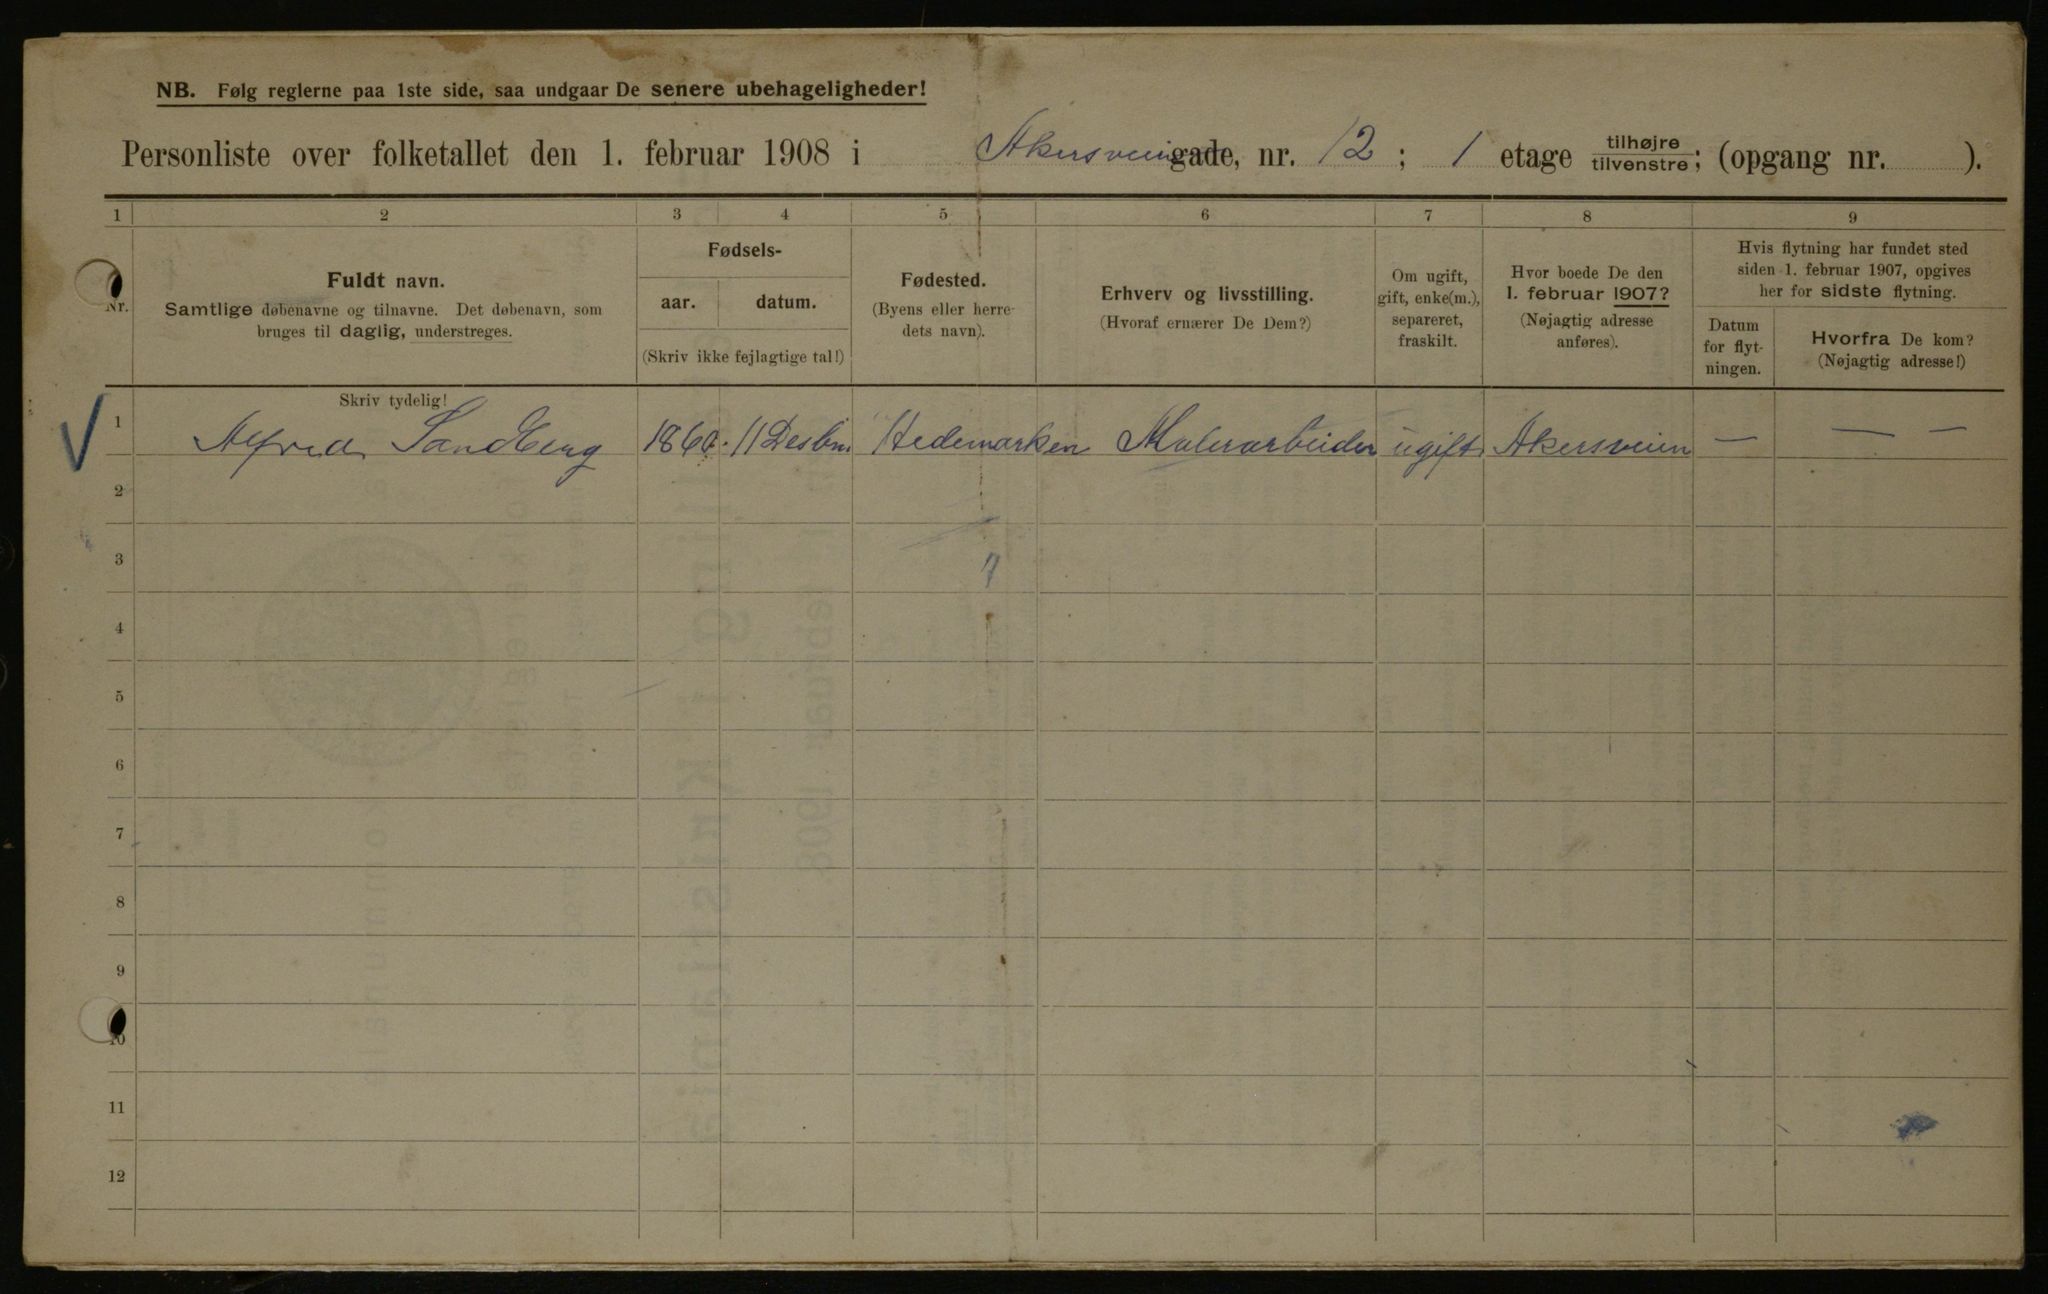 NB. Følg reglerne paa 1ste side, saa undgaar De senere ubehageligheder!
Personliste over folketallet den 1. februar 1908 i Akersveien gade, nr. 12; 1 etage tilhøjre tilvenstre; (opgang nr. ).
1 2 3 4 5 6 7 8 9
Nr.
Fuldt navn.
Samtlige døbenavne og tilnavne. Det døbenavn, som
bruges til daglig, understreges.
Fødsels-
aar. datum.
(Skriv ikke fejlagtige tal!)
Fødested.
(Byens eller herre-
dets navn).
Erhverv og livsstilling.
(Hvoraf ernærer De Dem?)
Om ugift,
gift, enke(m.),
separeret,
fraskilt.
Hvor boede De den
1. februar 1907?
(Nøjagtig adresse
anføres).
Hvis flytning har fundet sted
siden 1. februar 1907, opgives
her for sidste flytning.
Datum
for flyt-
ningen.
Hvorfra De kom?
(Nøjagtig adresse!)
Skriv tydelig!
1 Alfred Sandberg 1860. 11 Desbm Hedemarken Malerarbeider ugift Akersveien — — —
2
3
4
5
6
7
8
9
10
11
12